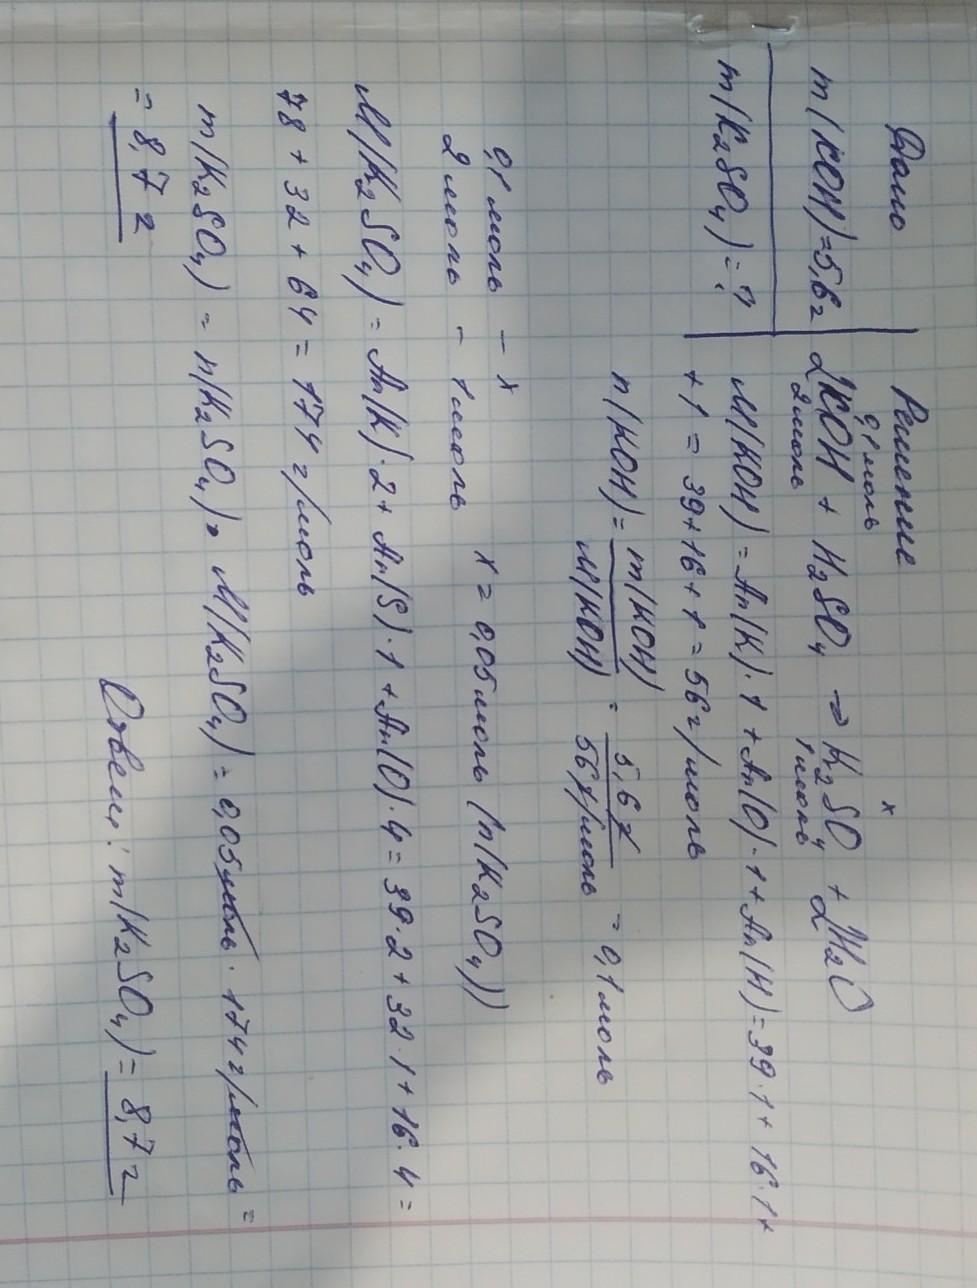 Дано
m(KOH)=5,6г
m(K₂SO₄)=?
Решение
0,1моль x
2KOH + H₂SO₄ → K₂SO₄ + 2H₂O
2моль 1моль
M(KOH)=Ar(K)·1+Ar(O)·1+Ar(H)=39·1+16·1+
+1=39+16+1=56г/моль
n(KOH)=m(KOH)/M(KOH)=5,6г/56г/моль=0,1моль
0,1моль – x
2моль – 1моль x=0,05моль (n(K₂SO₄))
M(K₂SO₄)=Ar(K)·2+Ar(S)·1+Ar(O)·4=39·2+32·1+16·4=
78+32+64=174г/моль
m(K₂SO₄)=n(K₂SO₄)·M(K₂SO₄)=0,05моль·174г/моль=
=8,7г
Ответ: m(K₂SO₄)=8,7г